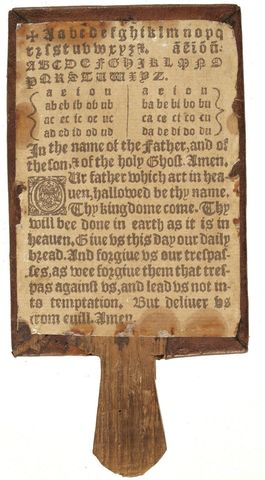 ✠ Aabcdefghiklmnopq
rzſstuvwxyz&. ãẽĩõũ:
ABCDEFGHIKLMNO
PQRSTUWXYZ.
a e i o u a e i o u
ab eb ib ob ub ba be bi bo bu
ac ec ic oc uc ca ce ci co cu
ad ed id od ud da de di do du
In the name of the Father, and of
the ſon, & of the holy Ghoſt. Amen.
OUr father which art in hea-
uen, hallowed be thy name.
Thy kingdome come. Thy
will bee done in earth as it is in
heauen. Giue vs this day our daily
bread. And forgiue vs our treſpaſ-
ſes, as wee forgiue them that treſ-
pas againſt vs, and lead vs not in-
to temptation. But deliuer vs
from euill. Amen.